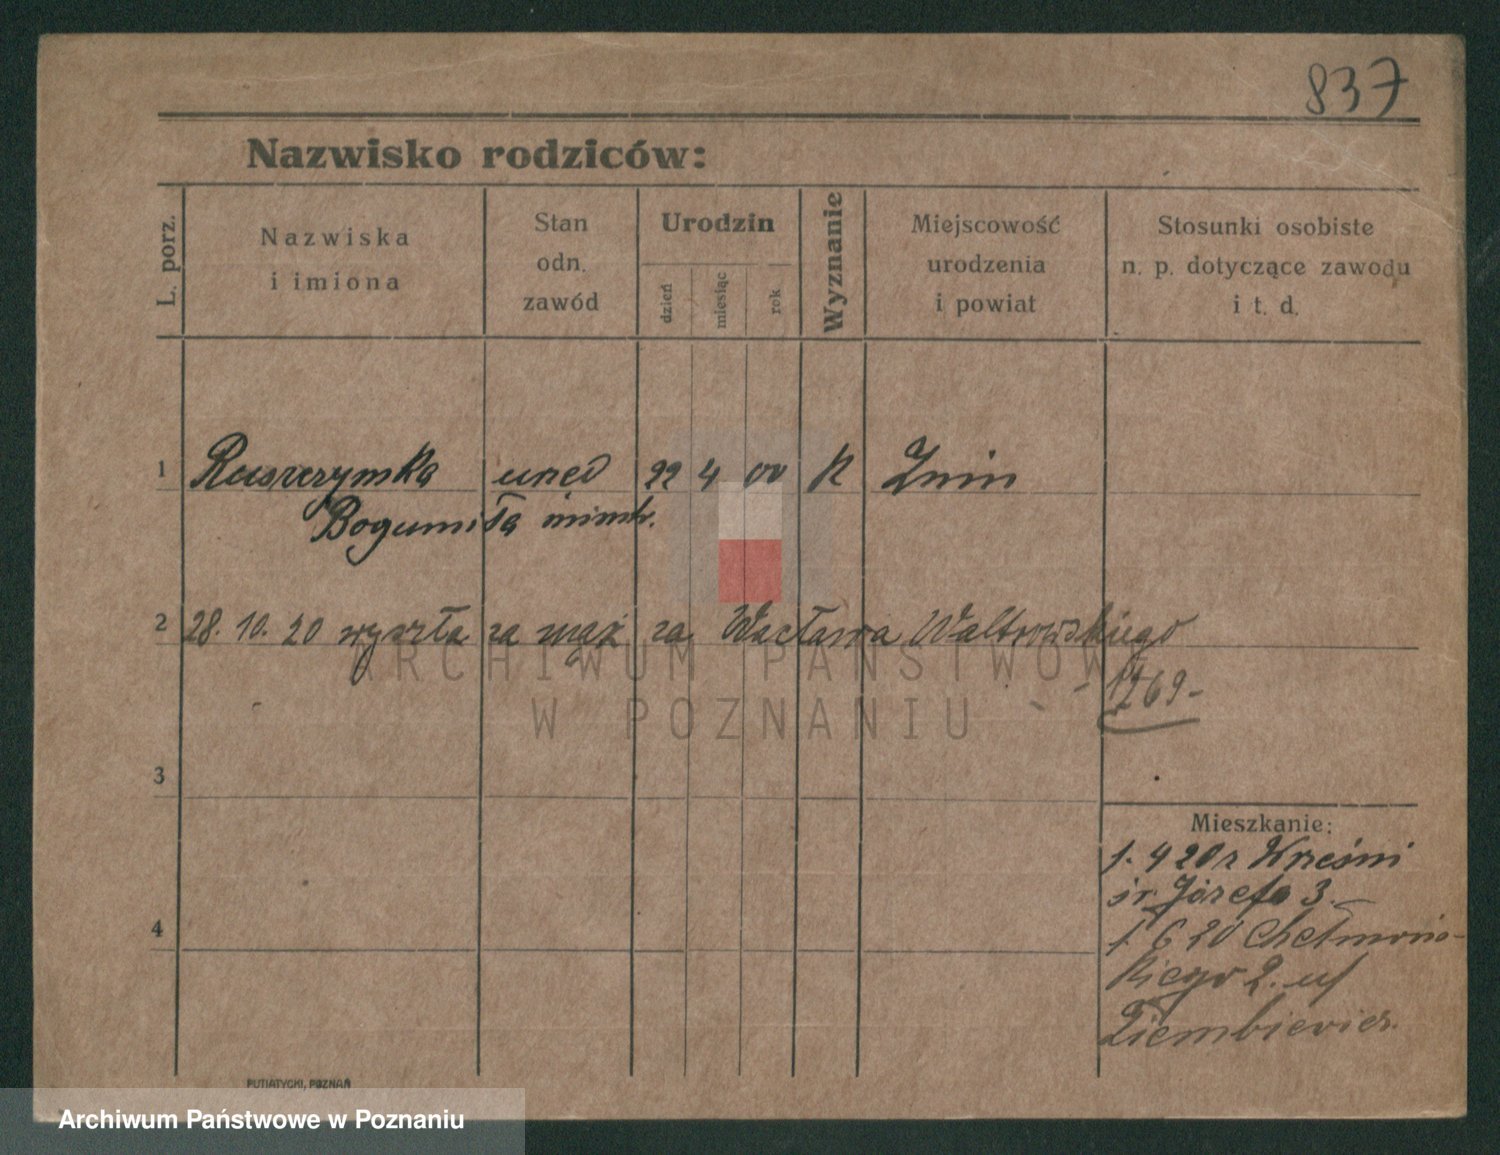 837
Nazwisko rodziców:
L. porz.
Nazwiska
i imiona
Stan
odn.
zawód
Urodzin
dzień
miesiąc
rok
Wyznanie
Miejscowość
urodzenia
i powiat
Stosunki osobiste
n. p. dotyczące zawodu
i t. d.
1 urzęd 22 4 00 K Żnin
Bogumiła
2 28. 10. 20 wyszła za mąż za Wacława
- 1769 -
3
Mieszkanie:
1. 4 20 z Wrześni
św. Józefa 3.
4 1. 6 20 Chełmoń-
skiego 2. u/
Ziembiewicz.
PUTIATYCKI, POZNAŃ
ARCHIWUM PAŃSTWOWE
W POZNANIU
Archiwum Państwowe w Poznaniu